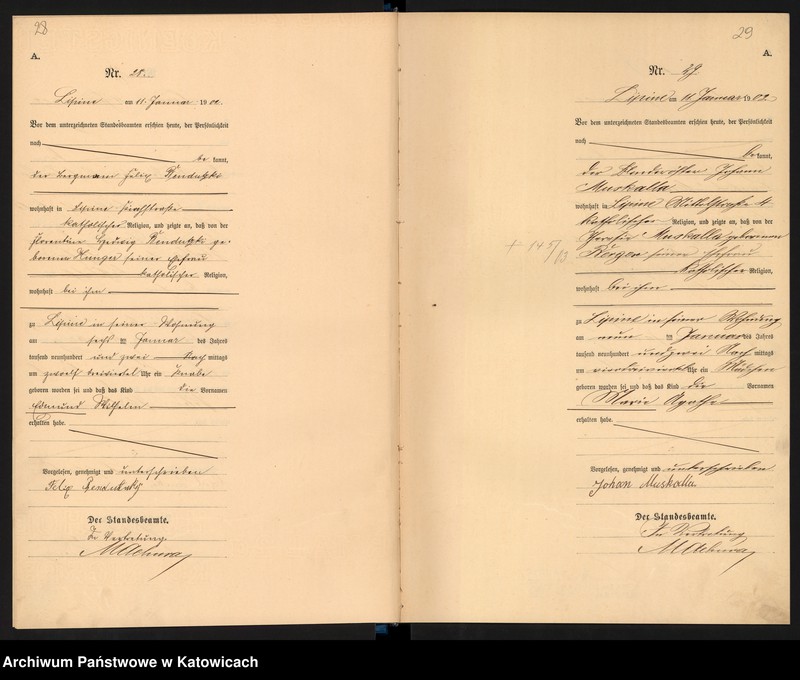 28
A.
Nr. 28
Lipine am 11 Januar 1902
Vor dem unterzeichneten Standesbeamten erschien heute, der Persönlichkeit
nach
be kannt,
der Bergmann Felix
wohnhaft in Lipine
katholischer Religion, und zeigte an, daß von der
Florentine Hedwig ge-
borenen seiner Ehefrau
katholischer Religion,
wohnhaft bei ihm
zu Lipine in seiner Wohnung
am sechs ten Januar des Jahres
tausend neunhundert und zwei Nach mittags
um zwoelf dreiviertel Uhr ein Knabe
geboren worden sei und daß das Kind die Vornamen
Edmund Wilhelm
erhalten habe.
Vorgelesen, genehmigt und unterschrieben
Felix
Der Standesbeamte.
In Vertretung.
29
A.
Nr. 29
Lipine am 11 Januar 1902
Vor dem unterzeichneten Standesbeamten erschien heute, der Persönlichkeit
nach
be kannt,
der Johann
Muskalla
wohnhaft in Lipine 4
katholischer Religion, und zeigte an, daß von der
Muskalla geborenen
seiner Ehefrau
katholischer Religion,
wohnhaft bei ihm
zu Lipine in seiner Wohnung
am neun ten Januar des Jahres
tausend neunhundert und zwei Nach mittags
um Uhr ein Mädchen
geboren worden sei und daß das Kind die Vornamen
Marie Agathe
erhalten habe.
Vorgelesen, genehmigt und unterschrieben
Johan Muskalla.
Der Standesbeamte.
In Vertretung
Archiwum Państwowe w Katowicach